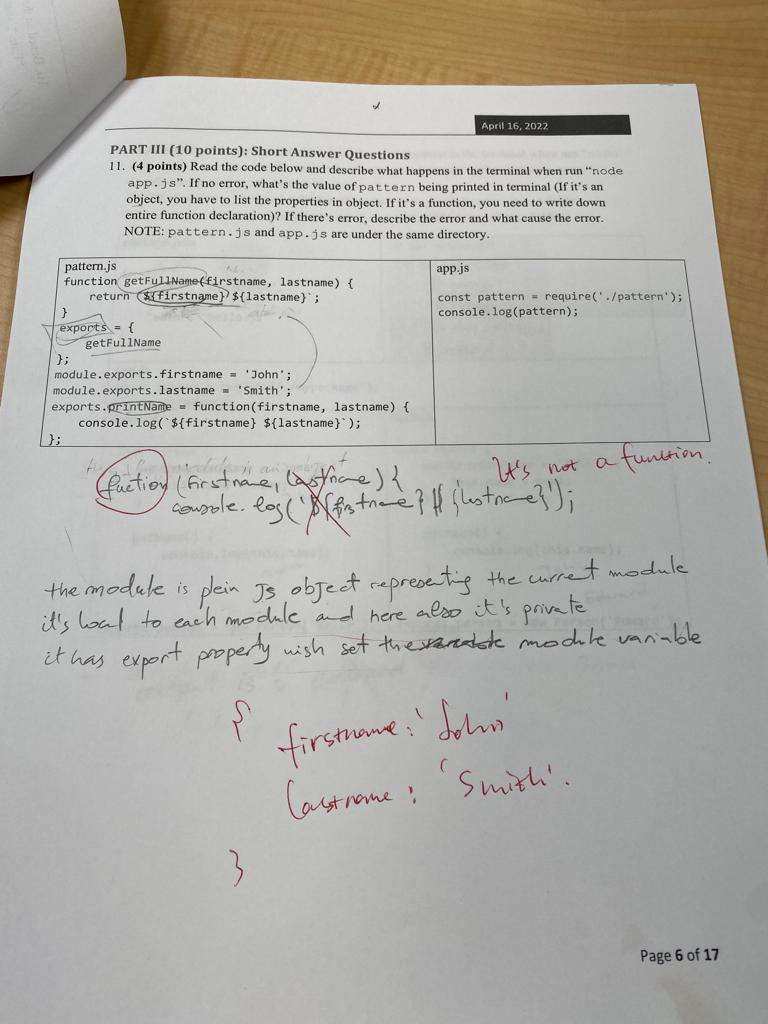 April 16, 2022
PART III (10 points): Short Answer Questions
11. (4 points) Read the code below and describe what happens in the terminal when run "node
app.js". If no error, what's the value of pattern being printed in terminal (If it's an
object, you have to list the properties in object. If it's a function, you need to write down
entire function declaration)? If there's error, describe the error and what cause the error.
NOTE: pattern.js and app.js are under the same directory.
pattern.js
function getFullName(firstname, lastname) {
return `${firstname} ${lastname}`;
}
exports = {
getFullName
};
module.exports.firstname = 'John';
module.exports.lastname = 'Smith';
exports.printName = function(firstname, lastname) {
console.log(`${firstname} ${lastname}`);
};
app.js
const pattern = require('./pattern');
console.log(pattern);
It's not a function.
fuction (firstname, lastname) {
console.log('${firstname} {lastname}');
the module is plein Js object representing the current module
it's local to each module and here also it's private
it has export property wish set the module variable
{
firstname: 'John'
lastname: 'Smith'.
}
Page 6 of 17